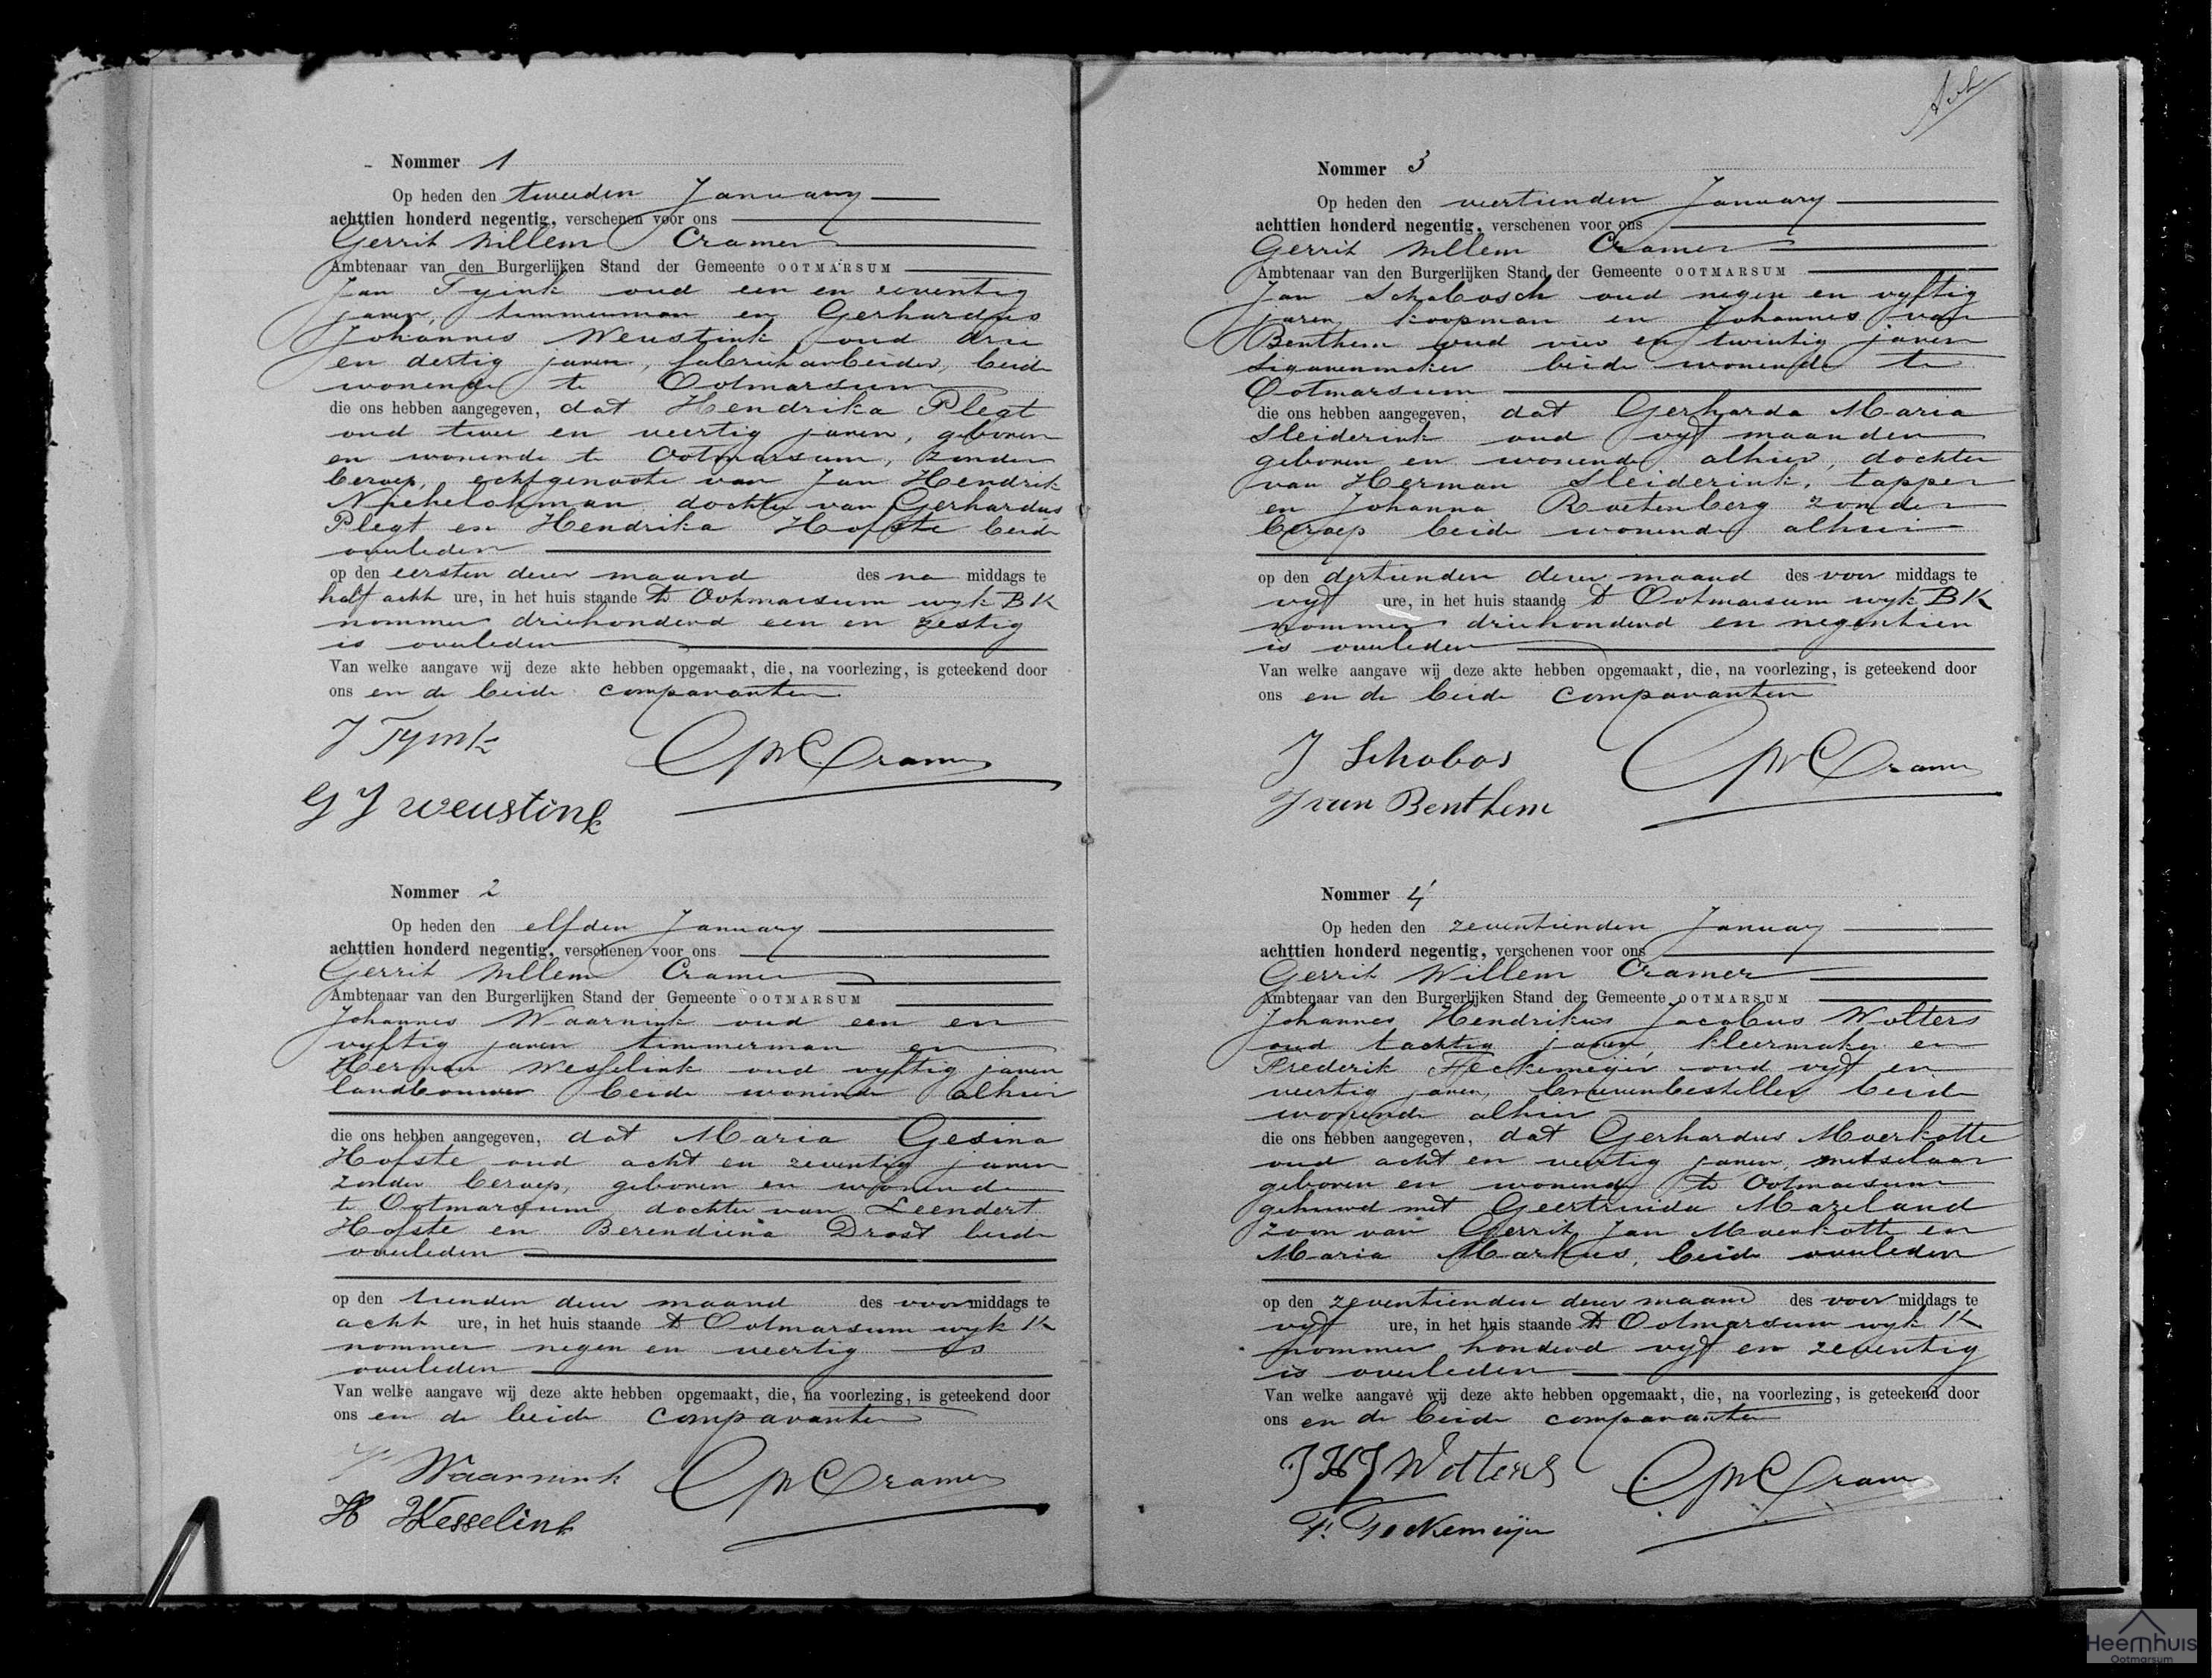 Nommer 1
Op heden den tweeden January
achttien honderd negentig, verschenen voor ons
Gerrit Willem Cramer
Ambtenaar van den Burgerlijken Stand der Gemeente OOTMARSUM
Jan Tyink oud een en zeventig
jaren, timmerman en Gerhardus
Johannes Weustink oud drie
en dertig jaren, fabriekarbeider, beide
wonende te Ootmarsum
die ons hebben aangegeven, dat Hendrika Plegt
oud twee en veertig jaren, geboren
en wonende te Ootmarsum, zonder
beroep, echtgenoote van Jan Hendrik
dochter van Gerhardus
Plegt en Hendrika Hofste beide
overleden
op den eersten dezer maand des na middags te
half acht ure, in het huis staande te Ootmarsum wyk BK
nommer driehonderd een en zestig
is overleden
Van welke aangave wij deze akte hebben opgemaakt, die, na voorlezing, is geteekend door
ons en de beide comparanten
J Tyink
GWCramer
G J Weustink
Nommer 2
Op heden den elfden January
achttien honderd negentig, verschenen voor ons
Gerrit Willem Cramer
Ambtenaar van den Burgerlijken Stand der Gemeente OOTMARSUM
Johannes Waarnink oud een en
vyftig jaren timmerman en
Herman Wesselink oud vyftig jaren
landbouwer beide wonende alhier
die ons hebben aangegeven, dat Maria Gesina
Hofste oud acht en zeventig jaren
zonder beroep, geboren en wonende
te Ootmarsum dochter van Leendert
Hofste en Berendiena Drost beide
overleden
op den tienden dezer maand des voor middags te
acht ure, in het huis staande te Ootmarsum wyk K
nommer negen en veertig is
overleden
Van welke aangave wij deze akte hebben opgemaakt, die, na voorlezing, is geteekend door
ons en de beide comparanten
Waarnink
GWCramer
H Wesselink
Nommer 3
Op heden den veertienden January
achttien honderd negentig, verschenen voor ons
Gerrit Willem Cramer
Ambtenaar van den Burgerlijken Stand der Gemeente OOTMARSUM
Jan Schabosch oud negen en vyftig
jaren, koopman en Johannes van
Benthem oud vier en twintig jaren
sigarenmaker beide wonende te
Ootmarsum
die ons hebben aangegeven, dat Gerharda Maria
Sleiderink oud vyf maanden
geboren en wonende alhier, dochter
van Herman Sleiderink, tapper
en Johanna Roetenberg zonder
beroep beide wonende alhier
op den dertienden dezer maand des voor middags te
vyf ure, in het huis staande te Ootmarsum wyk BK
nommer driehonderd en negentien
is overleden
Van welke aangave wij deze akte hebben opgemaakt, die, na voorlezing, is geteekend door
ons en de beide comparanten
J Schobos
GWCramer
J van Benthem
Nommer 4
Op heden den zeventienden January
achttien honderd negentig, verschenen voor ons
Gerrit Willem Cramer
Ambtenaar van den Burgerlijken Stand der Gemeente OOTMARSUM
Johannes Hendrikus Jacobus Wolters
oud tachtig jaren, kleermaker en
Frederik Fockemeijer oud vyf en
veertig jaren, brievenbesteller beide
wonende alhier
die ons hebben aangegeven, dat Gerhardus Moerkotte
oud acht en veertig jaren, metselaar
geboren en wonende te Ootmarsum
gehuwd met Geertruida Mazeland
zoon van Gerrit Jan Moerkotte en
Maria Markus, beide overleden
op den zeventienden dezer maand des voor middags te
vyf ure, in het huis staande te Ootmarsum wyk K
nommer honderd vyf en zeventig
is overleden
Van welke aangave wij deze akte hebben opgemaakt, die, na voorlezing, is geteekend door
ons en de beide comparanten
J H J Wolters
GWCramer
F. Fockemeijer
Heemhuis
Ootmarsum